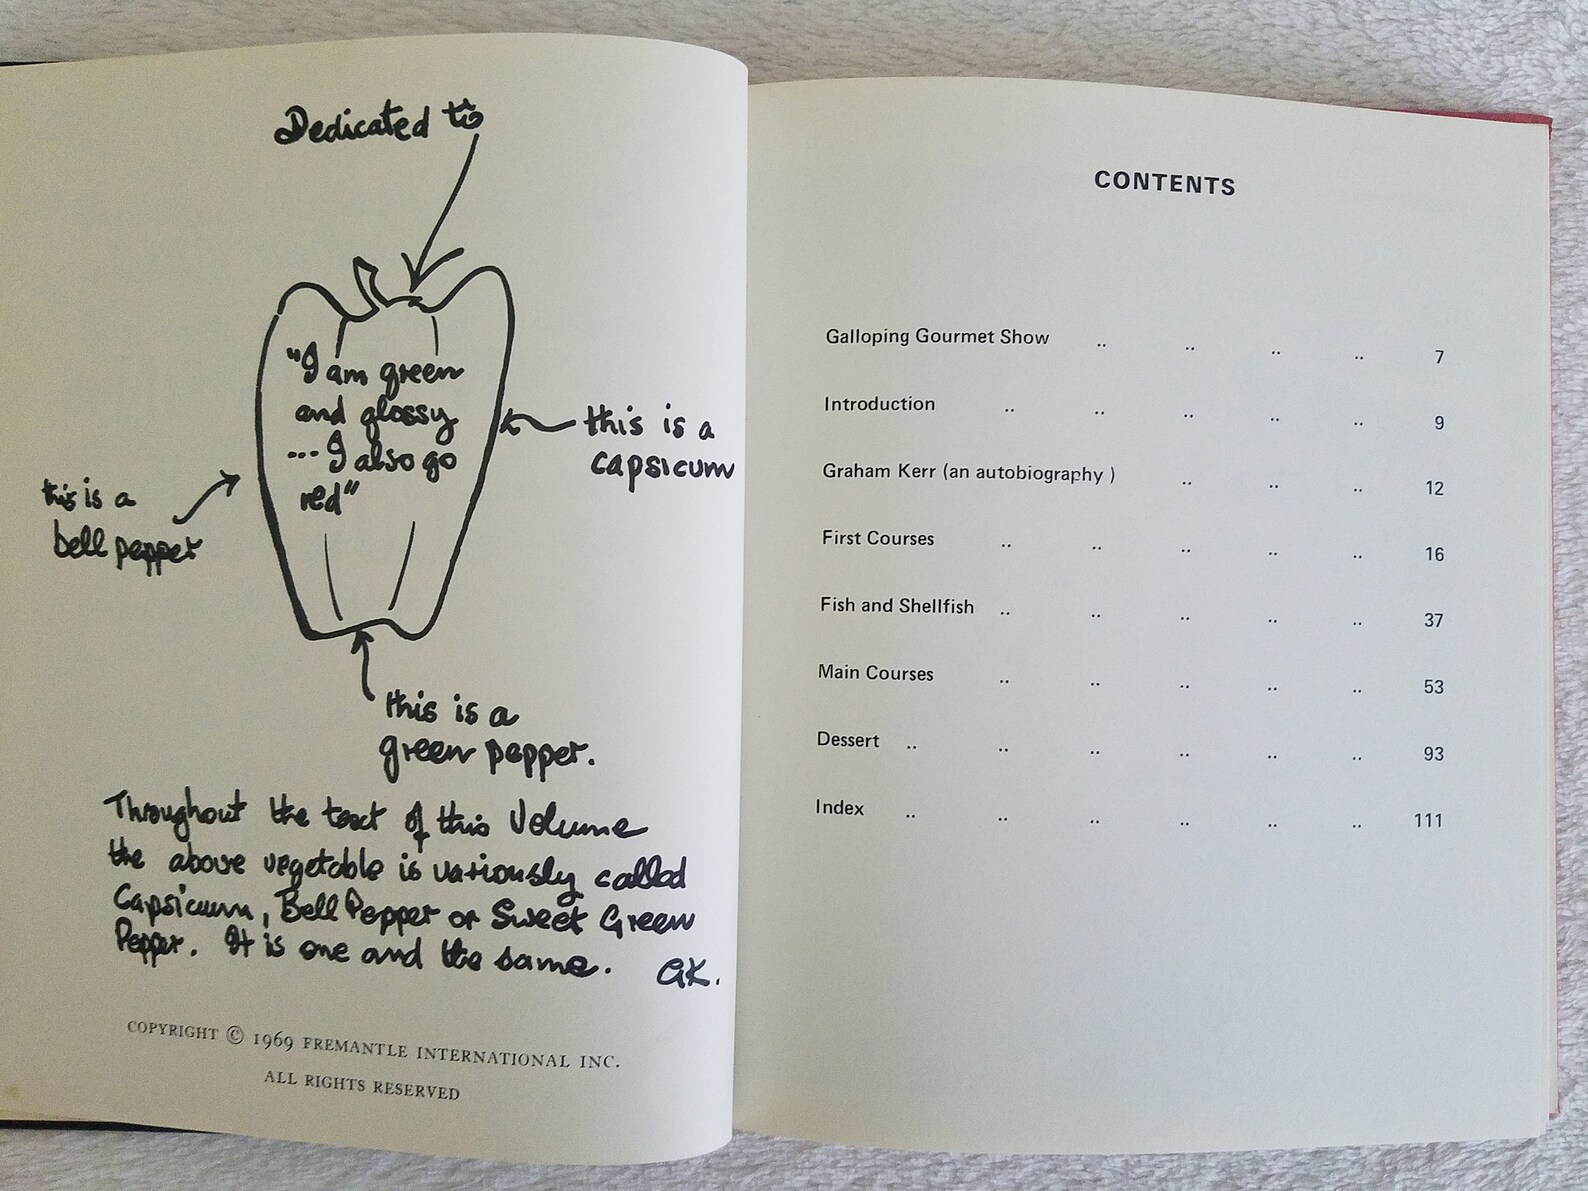 Dedicated to
"I am green
and glossy
... I also go
red"
this is a
capsicum
this is a
bell pepper
this is a
green pepper.
Throughout the text of this Volume
the above vegetable is variously called
Capsicum, Bell Pepper or Sweet Green
Pepper. It is one and the same. GK.
COPYRIGHT © 1969 FREMANTLE INTERNATIONAL INC.
ALL RIGHTS RESERVED
CONTENTS
Galloping Gourmet Show .. .. .. .. 7
Introduction .. .. .. .. .. 9
Graham Kerr (an autobiography ) .. .. .. 12
First Courses .. .. .. .. .. 16
Fish and Shellfish .. .. .. .. .. 37
Main Courses .. .. .. .. .. 53
Dessert .. .. .. .. .. .. 93
Index .. .. .. .. .. .. 111